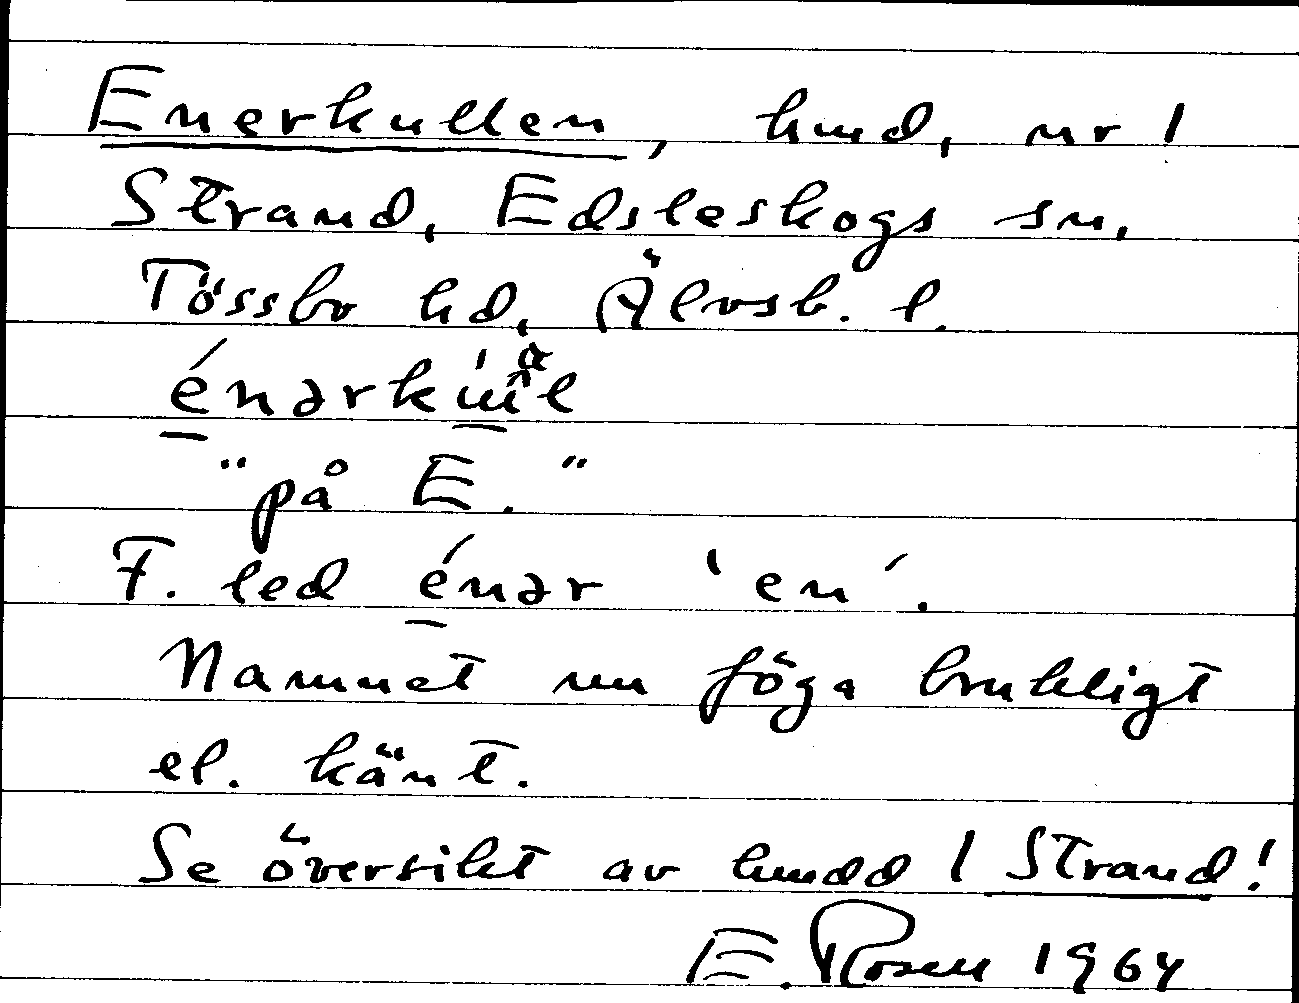 Enerkullen, hmd, nr 1
Strand, Edsleskogs sn,
Tössbo hd, Älvsb. l.
énərk
"på E."
F. led énər 'en'.
Namnet nu föga brukligt
el. känt.
Se översikt av hmdd 1 Strand!
E. Rosell 1964